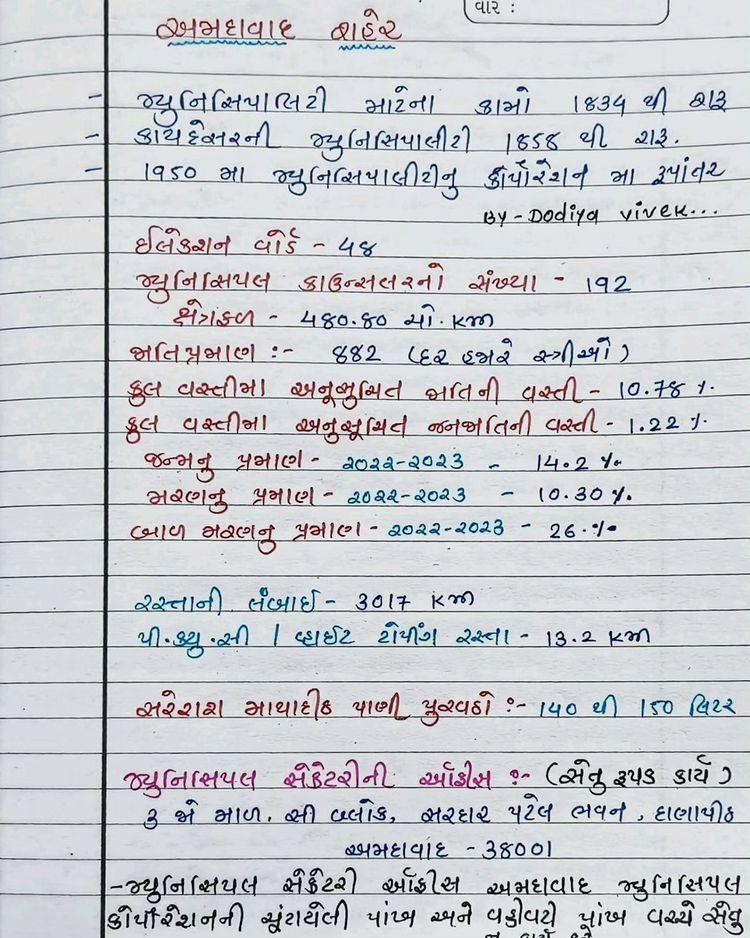 વાર :
અમદાવાદ શહેર
- મ્યુનિસિપાલિટી માટેના કામો 1834 થી શરૂ
- કાયદેસરની મ્યુનિસિપાલીટી 1858 થી શરૂ.
- 1950 મા મ્યુનિસિપાલીટીનુ કોર્પોરેશન મા રૂપાંતર
BY - Dodiya vivek...
ઈલેકશન વોર્ડ - 48
મ્યુનિસિપલ કાઉન્સલરનો સંખ્યા - 192
ક્ષેત્રફળ - 480.80 ચો. Km
જાતિપ્રમાણ :- 882 (દર હજારે સ્ત્રીઓ)
કુલ વસ્તીમાં અનૂસુચિત જાતિની વસ્તી - 10.78 %
કુલ વસ્તીમાં અનુસૂચિત જનજાતિની વસ્તી - 1.22 %
જન્મનુ પ્રમાણ - ૨૦૨૨-૨૦૨૩ - 14.2 %
મરણનુ પ્રમાણ - ૨૦૨૨-૨૦૨૩ - 10.30 %
બાળ મરણનુ પ્રમાણ - ૨૦૨૨-૨૦૨૩ - 26 %
રસ્તાની લંબાઈ - 3017 Km
પી.ક્યુ.સી / વ્હાઈટ ટોપીંગ રસ્તા - 13.2 Km
સરેરાશ માથાદીઠ પાણી પુરવઠો :- 140 થી 150 લિટર
મ્યુનિસિપલ સેક્રેટરીની ઑફીસ :- (સેતુ રૂપક કાર્ય)
૩ જો માળ. સી બ્લોક, સરદાર પટેલ ભવન, દાણાપીઠ
અમદાવાદ - 38001
- મ્યુનિસિપલ સેક્રેટરી ઑફીસ અમદાવાદ મ્યુનિસિપલ
કોર્પોરેશનની ચૂંટાયેલી પાંખ અને વહીવટી પાંખ વચ્ચે સેતુ